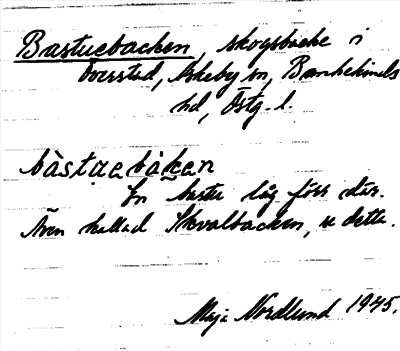 Bastuebacken, skogsbacke i
Överstad, Askeby sn, Bankekinds
hd, Östg. l.
bàstɑebàken
En bastu låg förr där.
Även kallad Skvalbacken, se detta.
Maja Nordlund 1945.